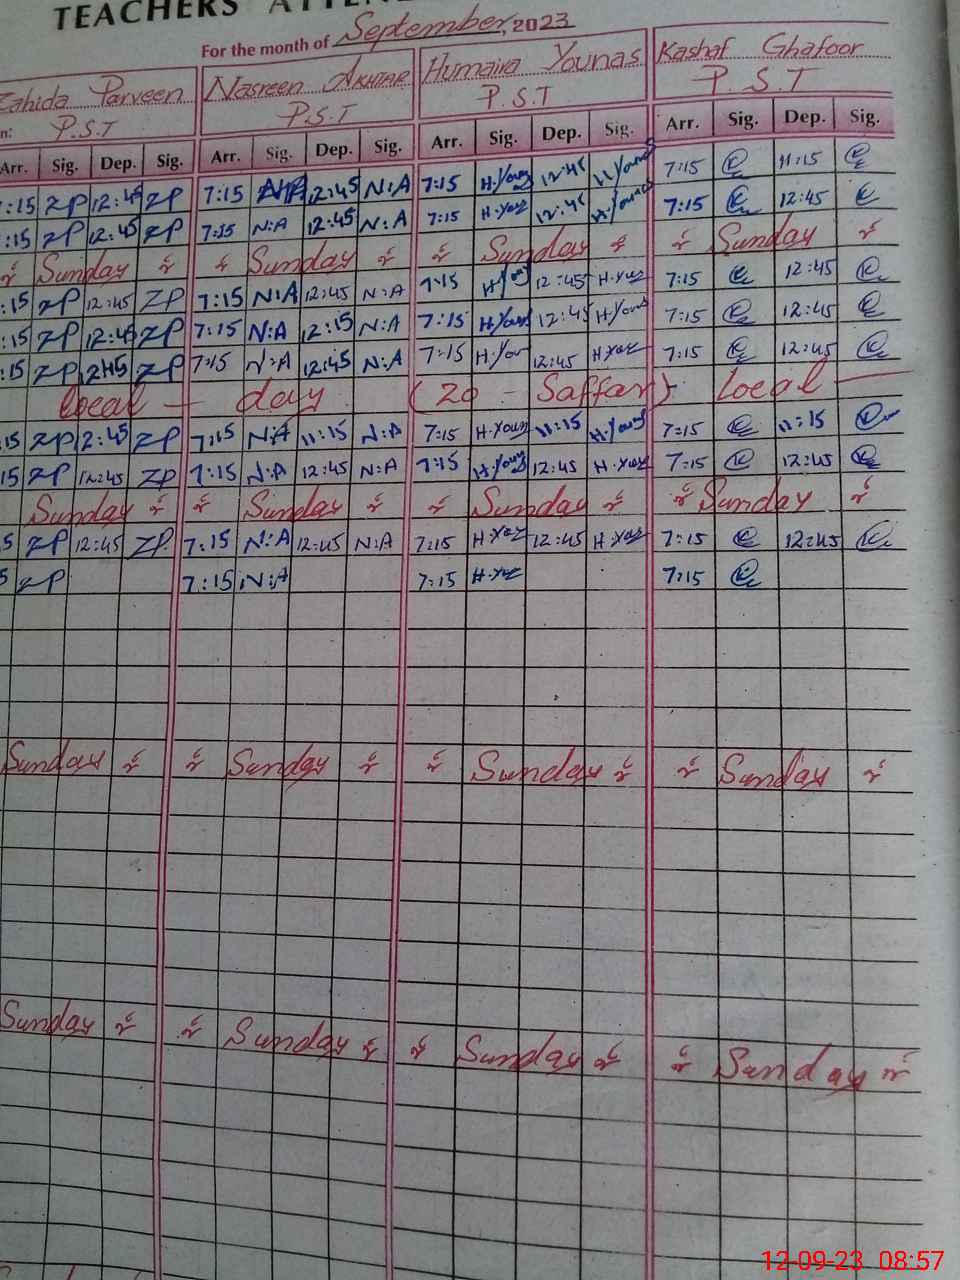 TEACHERS ATTEN
For the month of September, 2023
Zahida Parveen Nasreen Akhtar Humaira Younas Kashaf Ghafoor
P.S.T P.S.T P.S.T P.S.T
Arr. Sig. Dep. Sig. Arr. Sig. Dep. Sig. Arr. Sig. Dep. Sig. Arr. Sig. Dep. Sig.
:15 ZP 12:45 ZP 7:15 12:45 N:A 7:15 H.Youn 12:45 H Younas 7:15 11:15
:15 ZP 12:45 ZP 7:15 N:A 12:45 N:A 7:15 H.You 12:45 H.Younas 7:15 12:45
Sunday Sunday Sunday Sunday
:15 ZP 12:45 ZP 7:15 N:A 12:45 N:A 7:15 H.You 12:45 H.You 7:15 12:45
:15 ZP 12:45 ZP 7:15 N:A 12:15 N:A 7:15 H.Youn 12:45 H.Youn 7:15 12:45
:15 ZP 12:45 ZP 7:15 N:A 12:45 N:A 7:15 H.You 12:45 H.You 7:15 12:45
local — day (20 - Saffar) local —
15 ZP 2:45 ZP 7:15 N:A 11:15 N:A 7:15 H.Youn 11:15 H.Youn 7:15 11:15
15 ZP 12:45 ZP 7:15 N:A 12:45 N:A 7:15 H.Youn 12:45 H.You 7:15 12:45
Sunday Sunday Sunday Sunday
5 ZP 12:45 ZP 7:15 N:A 12:45 N:A 7:15 H.You 12:45 H.You 7:15 12:45
5 ZP 7:15 N:A 7:15 H.You 7:15
Sunday Sunday Sunday Sunday
Sunday Sunday Sunday Sunday
12-09-23 08:57